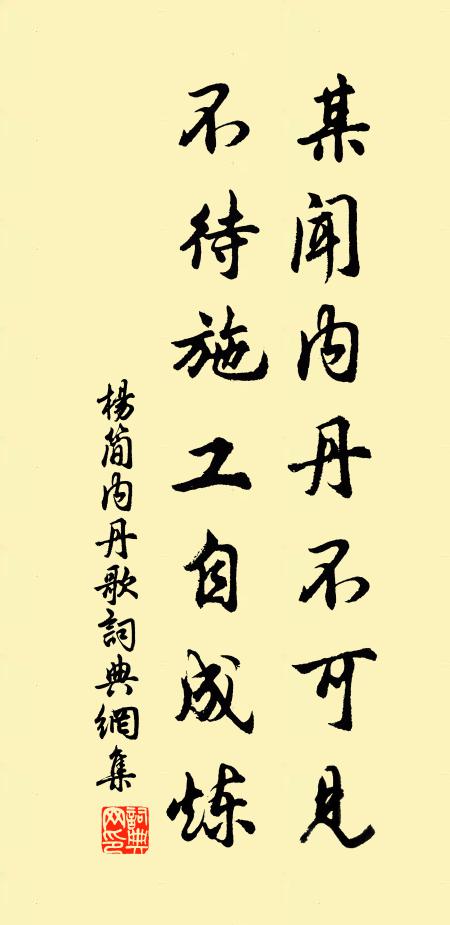 某闻内丹不可见
不待施工自成炼
楊简内丹歌詞典網集
詞典
网印